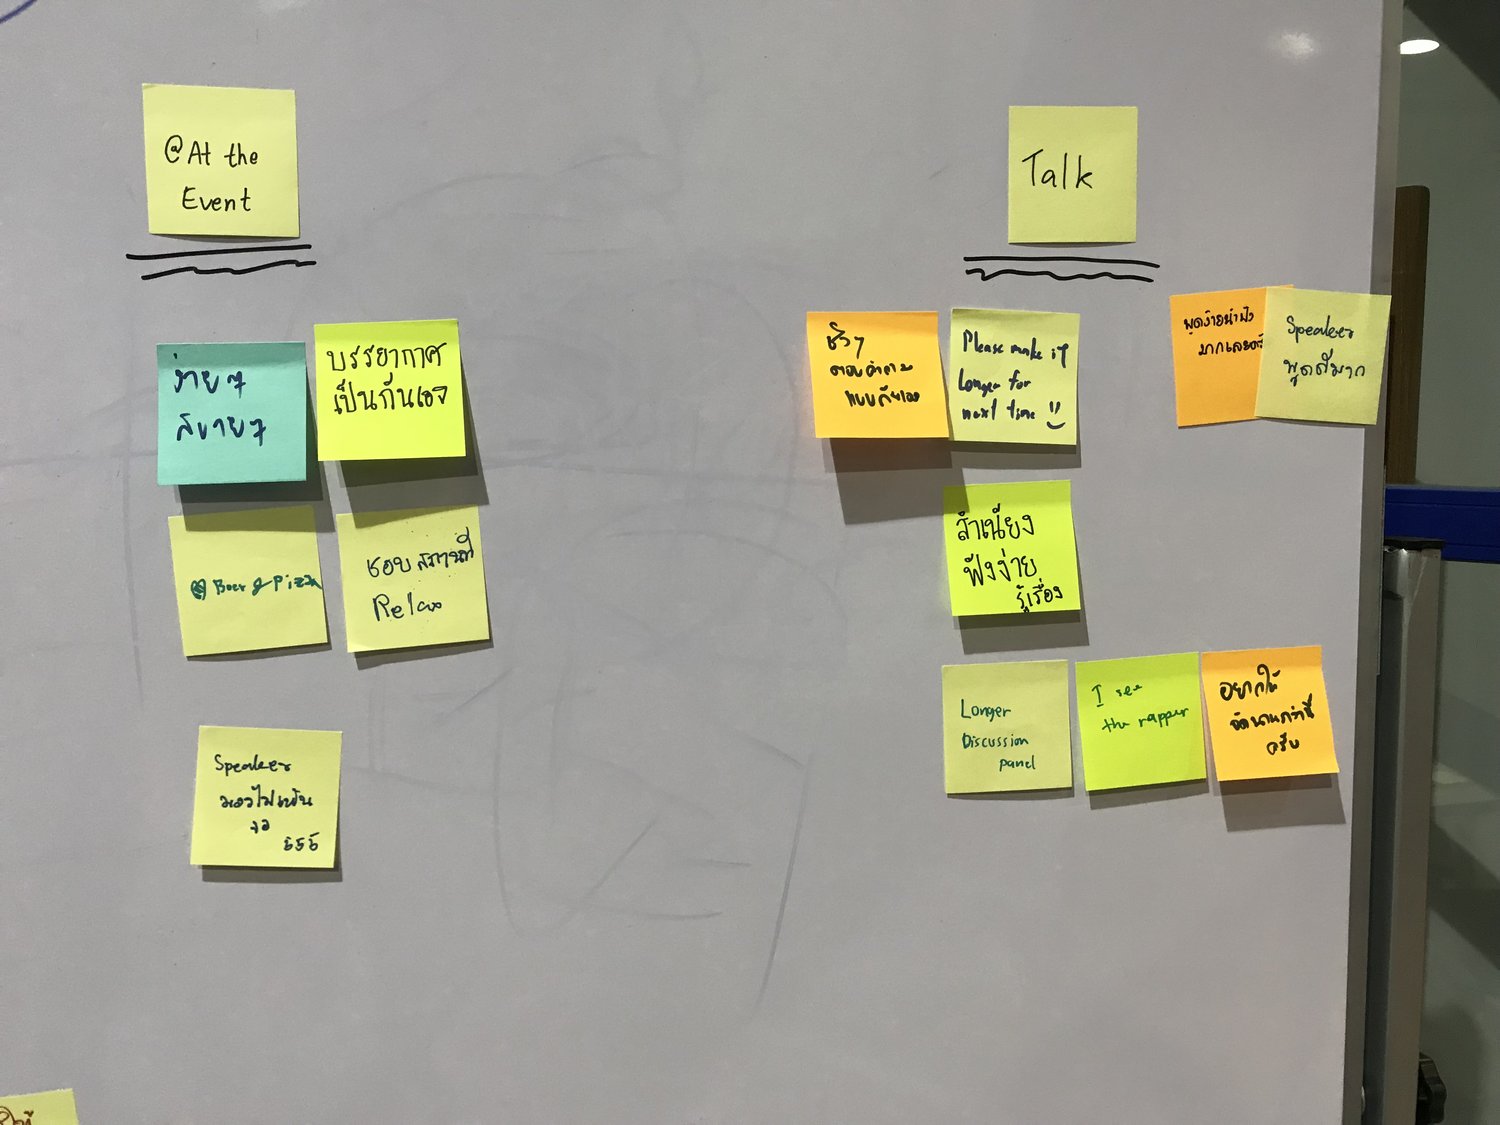 @At the
Event
ง่ายๆ
สบายๆ
บรรยากาศ
เป็นกันเอง
Beer & Pizza
ชอบสถานที่
Relax
Speaker
มองไม่เห็น
จอ
555
Talk
ชิวๆ
ตอบคำถาม
แบบกันเอง
Please make it
Longer for
next time
พูดง่ายน่าฟัง
มากเลยครับ
Speaker
พูดดีมาก
สำเนียง
ฟังง่าย
รู้เรื่อง
Longer
Discussion
panel
I see
the rapper
อยากให้
จัดนานกว่านี้
ครับ